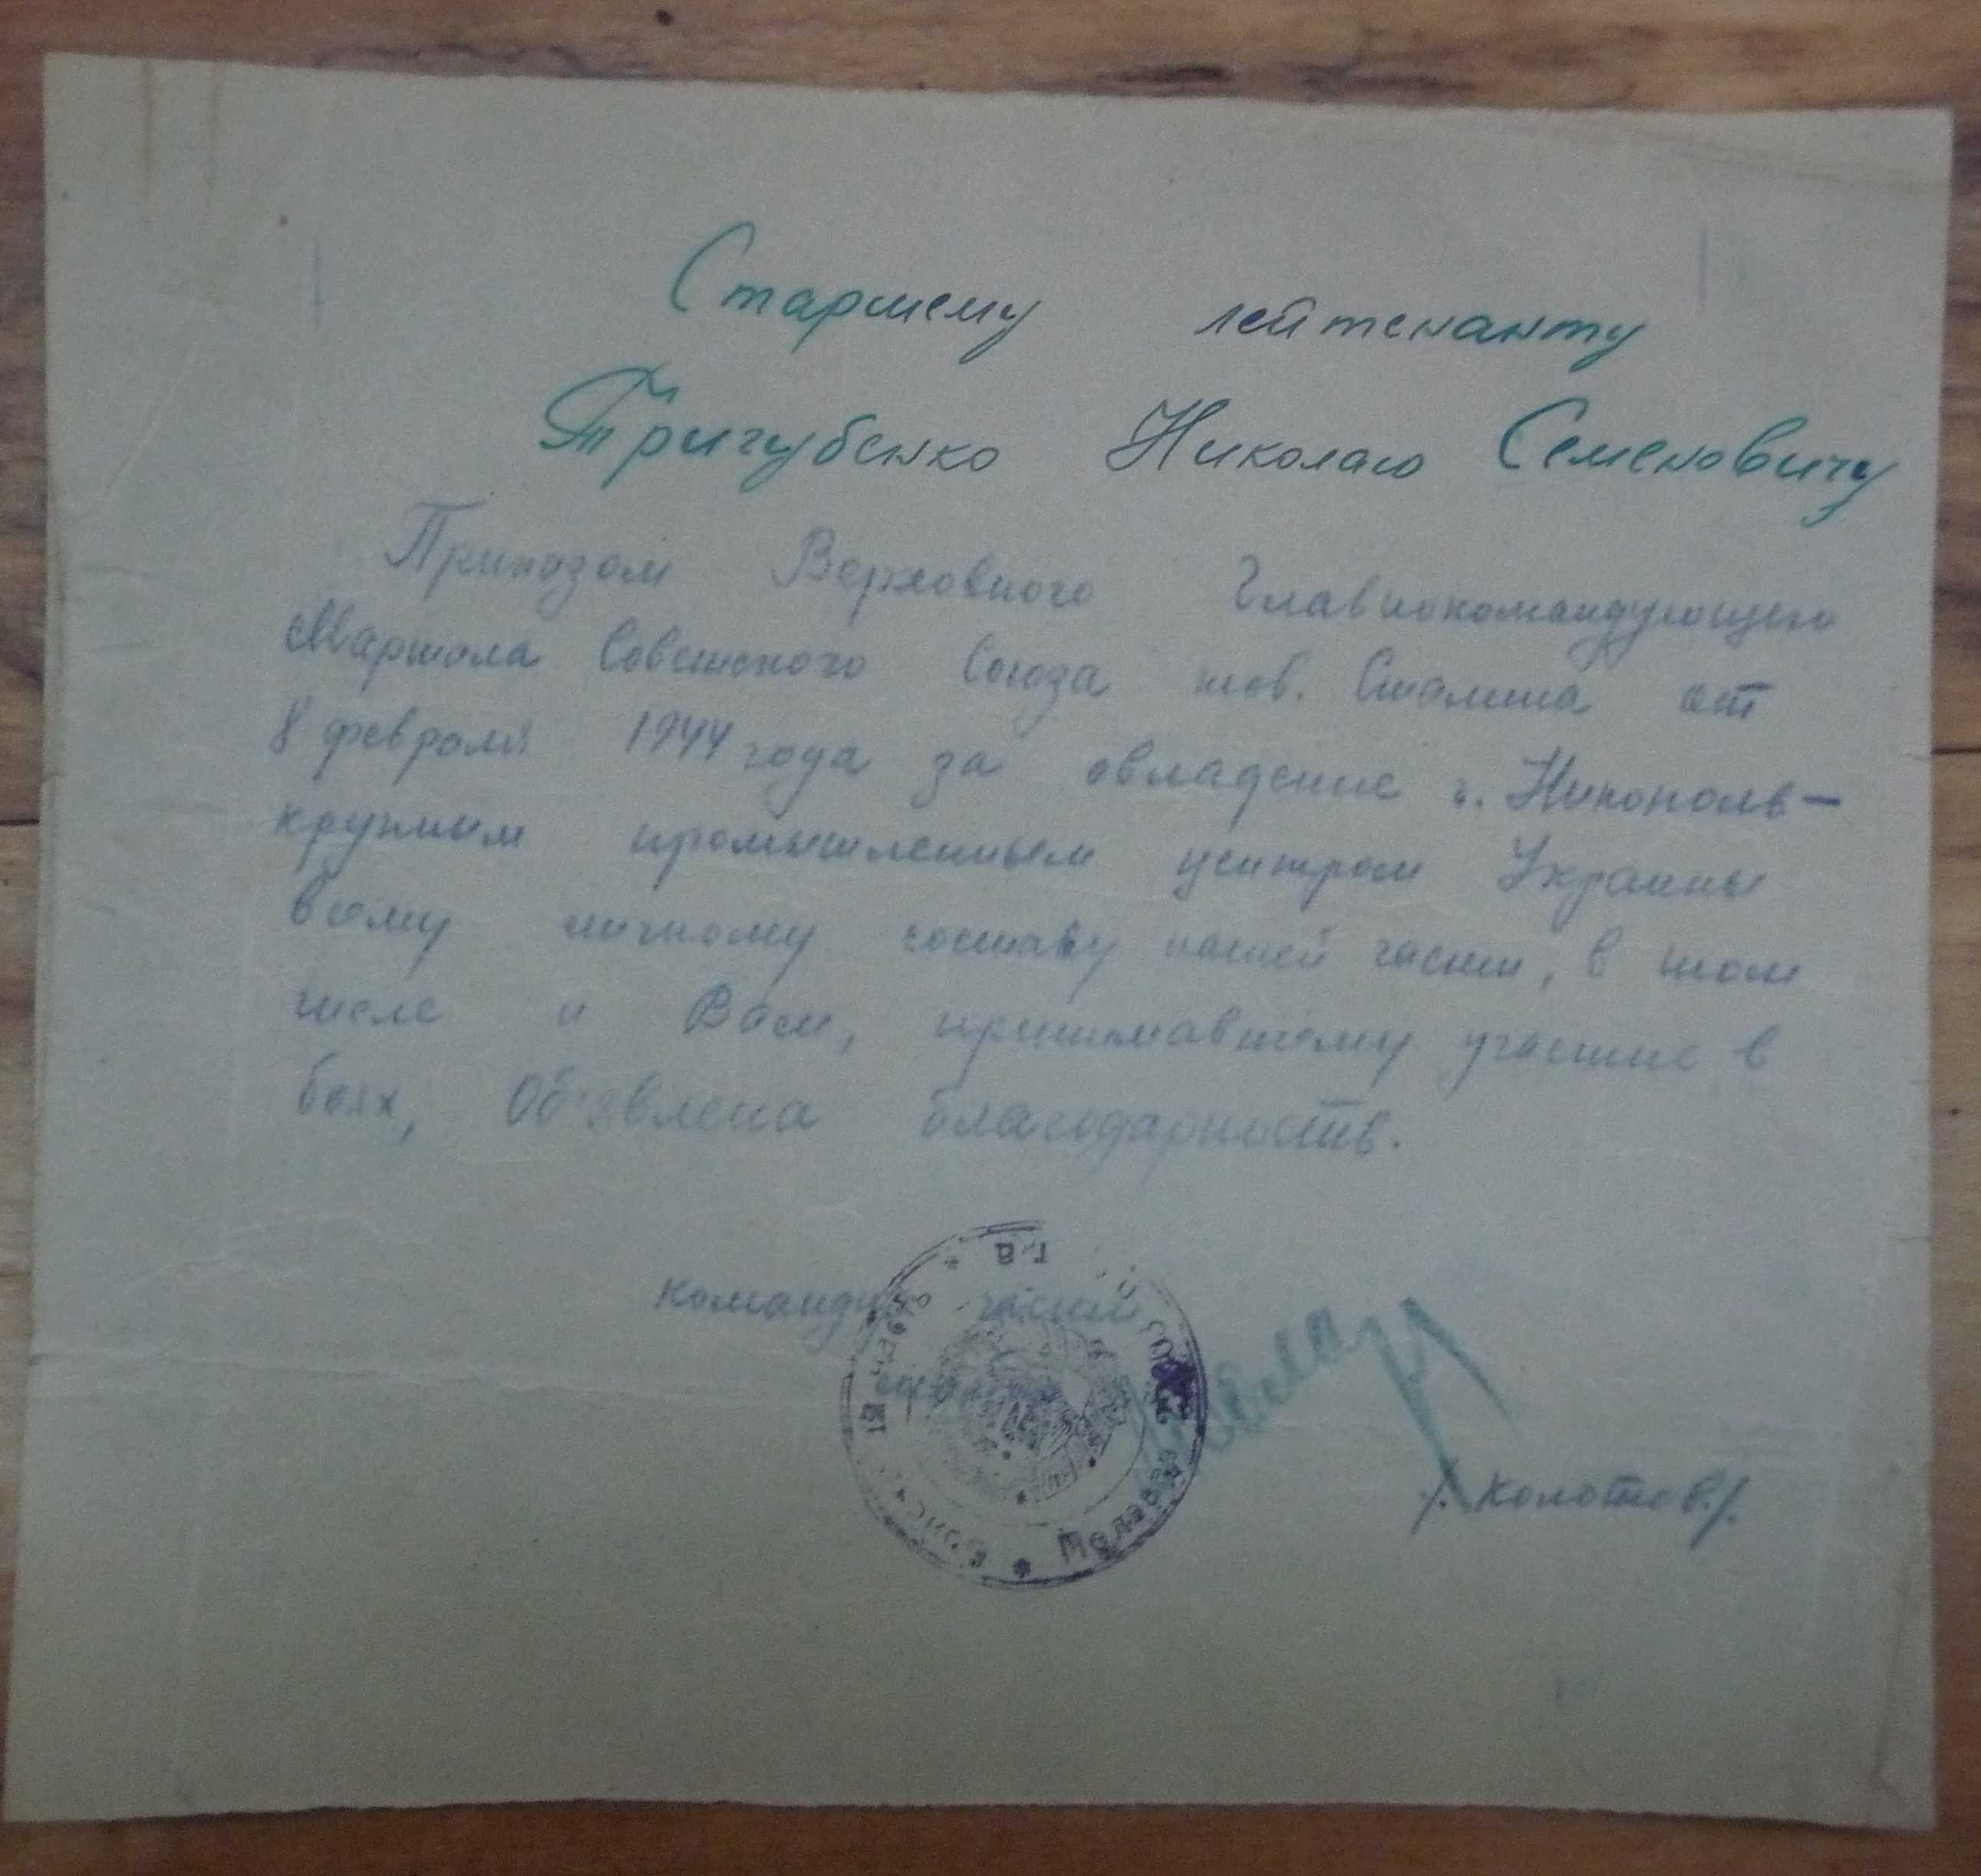 Старшему лейтенанту
Тригубенко Николаю Семеновичу
Приказом Верховного Главнокомандующего
Маршала Советского Союза тов. Сталина от
8 февраля 1944 года за овладение г. Никополь—
крупным промышленным центром Украины
всему личному составу нашей части, в том
числе и Вам, принимавшему участие в
боях, Об'явлена благодарность.
командир части
/. Колотов./.
Полевая